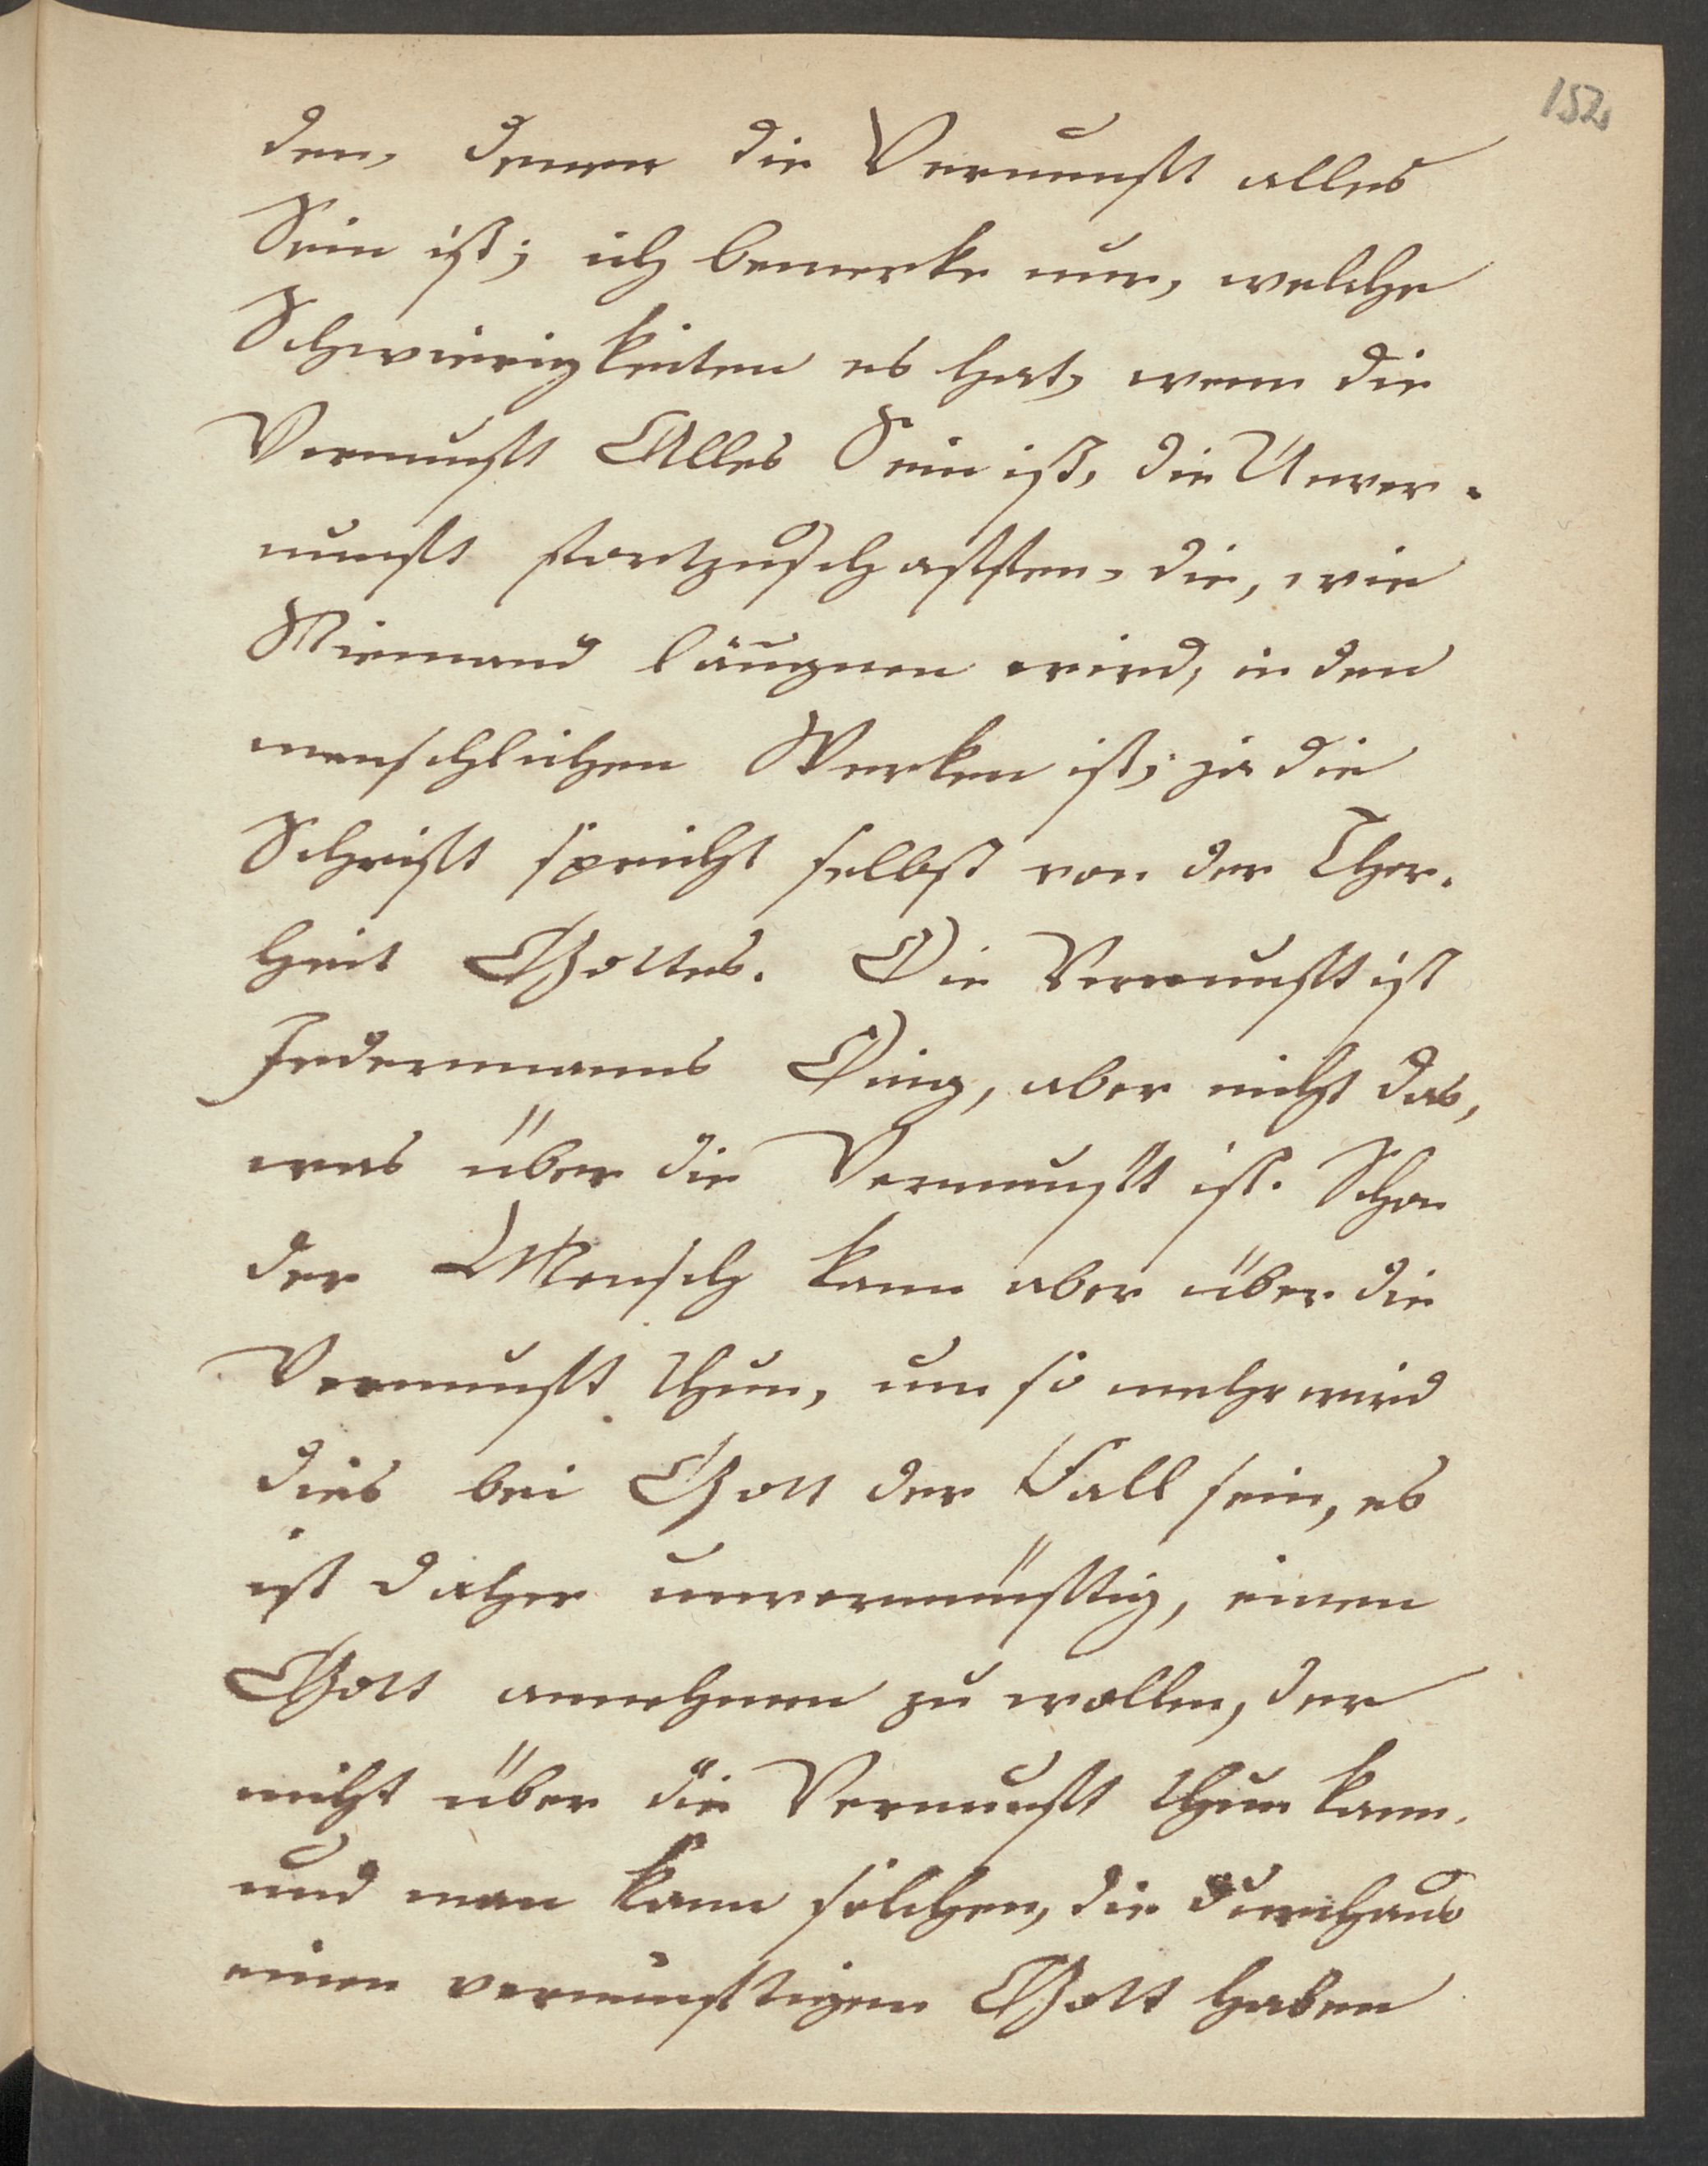 152
den, denen die Vernunft alles
Sein ist; ich bemerke nur, welche
Schwierigkeiten es hat, wenn die
Vernunft Alles Sein ist, die Unver-
nunft fortzuschaffen, die, wie
Niemand läugnen wird, in den
menschlichen Werken ist; ja die
Schrift spricht selbst von der Thor-
heit Gottes. Die Vernunft ist
Jedermanns Ding, aber nicht das,
was über die Vernunft ist. Schon
der Mensch kann aber über die
Vernunft thun, um so mehr wird
dies bei Gott der Fall sein, es
ist daher unvernünftig, einen
Gott annehmen zu wollen, der
nicht über die Vernunft thun kann,
und man kann solchen, die durchaus
einen vernünftigen Gott haben